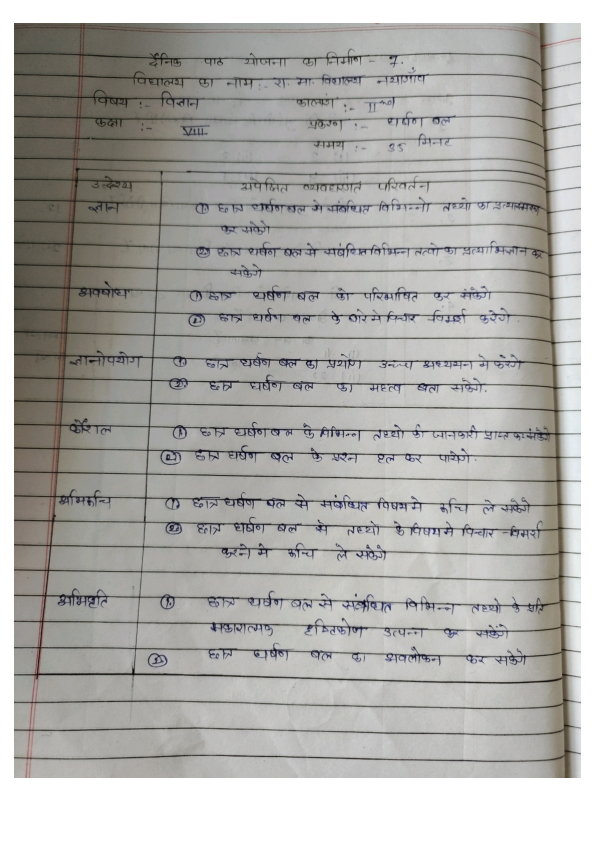 दैनिक पाठ योजना का निर्माण - 7.
विद्यालय का नाम :- रा. मा. विद्यालय नयागाँव
विषय :- विज्ञान कालांश :- II
कक्षा :- VIII प्रकरण :- घर्षण बल
समय :- 35 मिनट
उद्देश्य अपेक्षित व्यवहारगत परिवर्तन
ज्ञान ① छात्र घर्षण बल से संबंधित विभिन्नो तथ्यो का प्रत्यास्मरण
कर सकेगे
② छात्र घर्षण बल से संबंधित विभिन्न तथ्यो का प्रत्याभिज्ञान कर
सकेगे
अवबोध ① छात्र घर्षण बल को परिभाषित कर सकेगे
② छात्र घर्षण बल के बारे मे विचार विमर्श करेगे.
ज्ञानोपयोग ① छात्र घर्षण बल का प्रयोग उच्च अध्ययन मे करेगे
② छात्र घर्षण बल का महत्व बता सकेगे.
कौशल ① छात्र घर्षण बल के विभिन्न तथ्यो की जानकारी प्राप्त कर सकेगे
② छात्र घर्षण बल के प्रश्न हल कर पायेगे.
अभिरूचि ① छात्र घर्षण बल से संबंधित विषय मे रूचि ले सकेगे
② छात्र घर्षण बल से तथ्यो के विषय मे विचार - विमर्श
करने मे रूचि ले सकेगे
अभिवृति ① छात्र घर्षण बल से संबंधित विभिन्न तथ्यो के प्रति
सकारात्मक दृष्टिकोण उत्पन्न कर सकेगे
② छात्र घर्षण बल का अवलोकन कर सकेगे